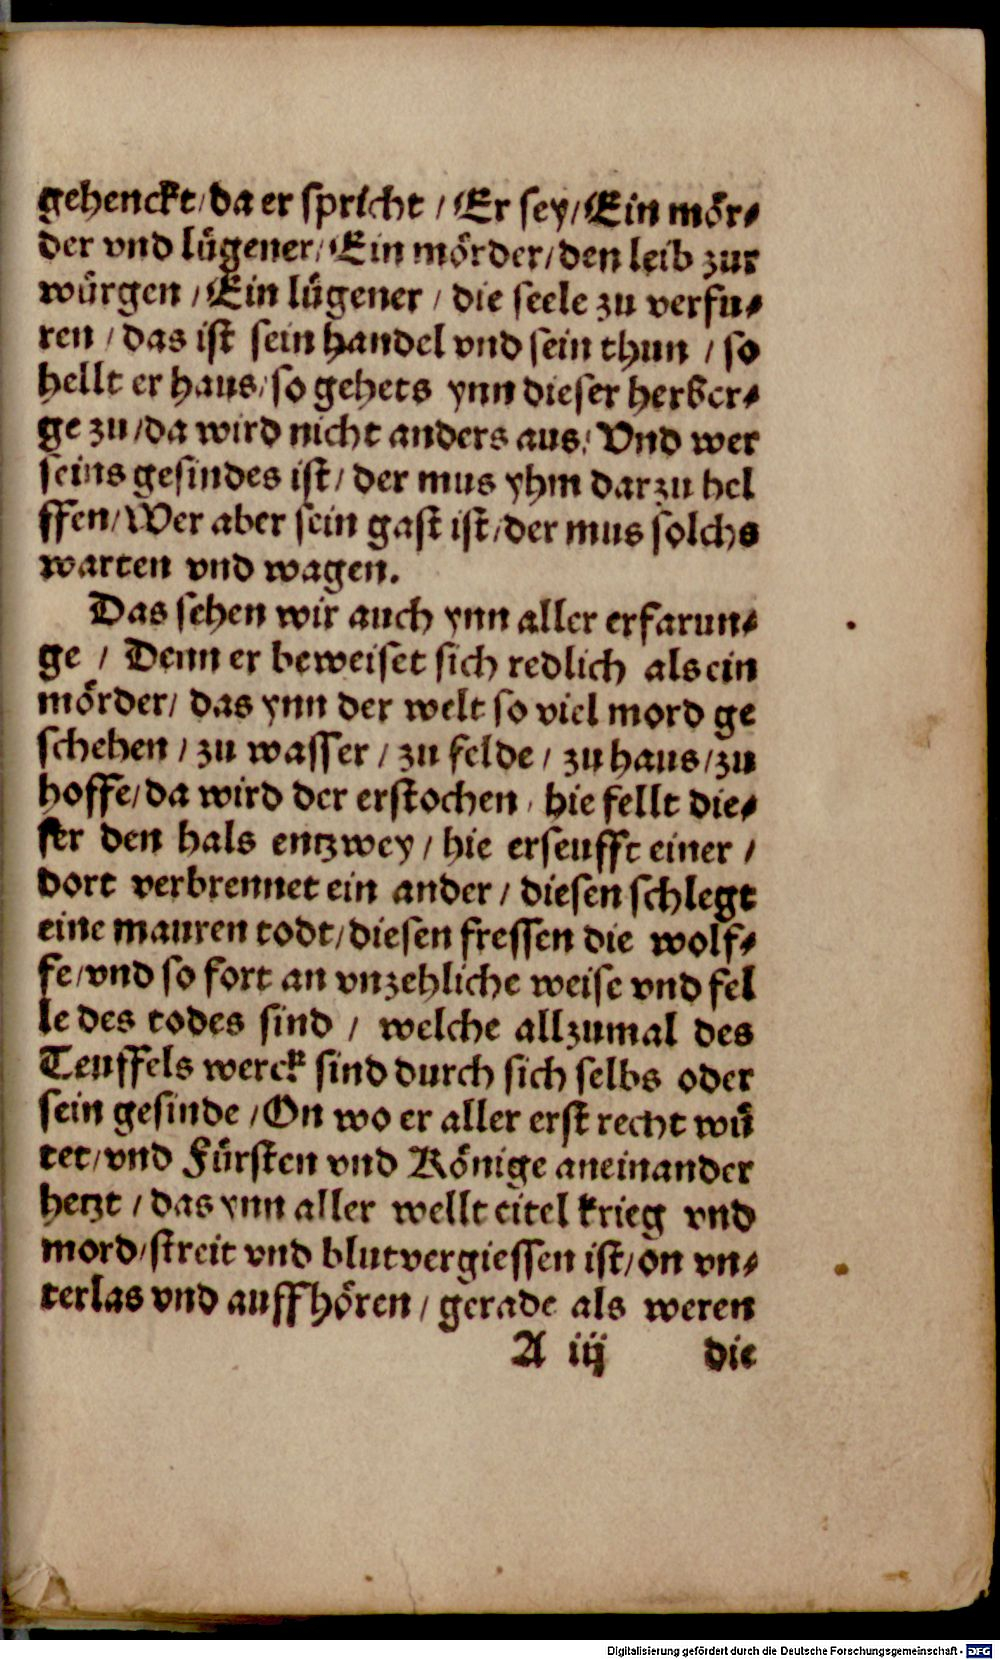 gehenckt/da er spricht / Er sey/Ein mör-
der vnd lügener/Ein mörder/den leib zur
würgen / Ein lügener / die seele zu verfu-
ren / das ist sein handel vnd sein thun / so
hellt er haus/so gehets ynn dieser herber-
ge zu/da wird nicht anders aus/ Vnd wer
seins gesindes ist/ der mus yhm darzu hel
ffen/Wer aber sein gast ist/der mus solchs
warten vnd wagen.
Das sehen wir auch ynn aller erfarun-
ge / Denn er beweiset sich redlich als ein
mörder/ das ynn der welt so viel mord ge
schehen / zu wasser / zu felde / zu haus/zu
hoffe/da wird der erstochen/ hie fellt die-
ser den hals entzwey / hie erseufft einer /
dort verbrennet ein ander / diesen schlegt
eine mauren todt/diesen fressen die wolf-
fe/vnd so fort an vnzehliche weise vnd fel
le des todes sind / welche allzumal des
Teuffels werck sind durch sich selbs oder
sein gesinde /On wo er aller erst recht wü
tet/vnd Fürsten vnd Könige aneinander
hetzt / das ynn aller wellt eitel krieg vnd
mord/streit vnd blutvergiessen ist/on vn-
terlas vnd auffhören / gerade als weren
A iij die
Digitalisierung gefördert durch die Deutsche Forschungsgemeinschaft - DFG